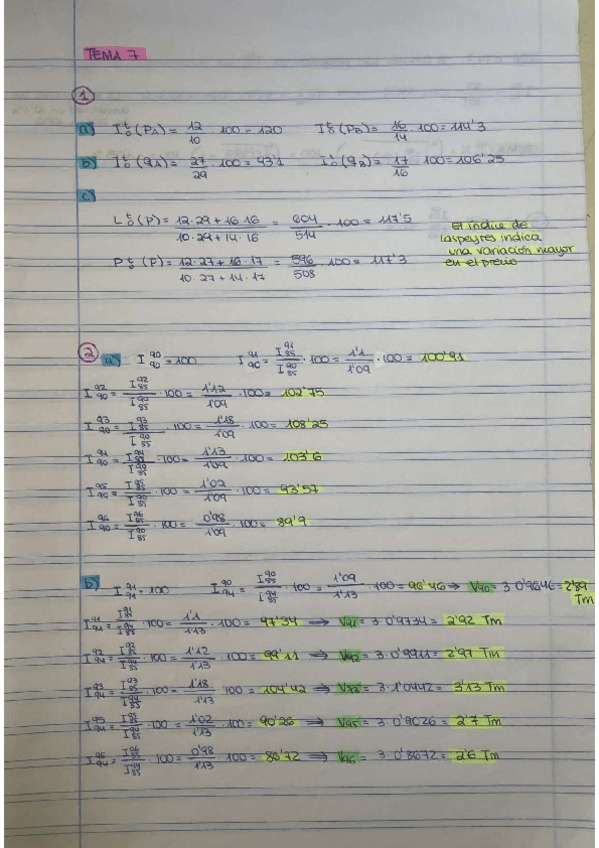 TEMA 7
1
a) I₀ᵗ (PA) = 12/10 · 100 = 120 I₀ᵗ (PB) = 16/14 · 100 = 114'3
b) I₀ᵗ (qA) = 27/29 · 100 = 93'1 I₀ᵗ (qB) = 17/16 · 100 = 106'25
c)
L₀ᵗ (P) = 12·29 + 16·16 / 10·29 + 14·16 = 604/514 · 100 = 117'5
El índice de
laspeyres indica
una variación mayor
en el precio
P₀ᵗ (P) = 12·27 + 16·17 / 10·27 + 14·17 = 596/508 · 100 = 117'3
2 a) I⁹⁰₉₀ = 100 I⁹¹₉₀ = I⁹¹₈₅/I⁹⁰₈₅ · 100 = 1'1/1'09 · 100 = 100'91
I⁹²₉₀ = I⁹²₈₅/I⁹⁰₈₅ · 100 = 1'12/1'09 · 100 = 102'75
I⁹³₉₀ = I⁹³₈₅/I⁹⁰₈₅ · 100 = 1'18/1'09 · 100 = 108'25
I⁹⁴₉₀ = I⁹⁴₈₅/I⁹⁰₈₅ · 100 = 1'13/1'09 · 100 = 103'6
I⁹⁵₉₀ = I⁹⁵₈₅/I⁹⁰₈₅ · 100 = 1'02/1'09 · 100 = 93'57
I⁹⁶₉₀ = I⁹⁶₈₅/I⁹⁰₈₅ · 100 = 0'98/1'09 · 100 = 89'9
b) I⁹⁴₉₄ = 100 I⁹⁰₉₄ = I⁹⁰₈₅/I⁹⁴₈₅ · 100 = 1'09/1'13 · 100 = 96'46 ⇒ V₉₀ = 3·0'9646 = 2'89 Tm
I⁹¹₉₄ = I⁹¹₈₅/I⁹⁴₈₅ · 100 = 1'1/1'13 · 100 = 97'34 ⇒ V₉₁ = 3·0'9734 = 2'92 Tm
I⁹²₉₄ = I⁹²₈₅/I⁹⁴₈₅ · 100 = 1'12/1'13 · 100 = 99'11 ⇒ V₉₂ = 3·0'9911 = 2'97 Tm
I⁹³₉₄ = I⁹³₈₅/I⁹⁴₈₅ · 100 = 1'18/1'13 · 100 = 104'42 ⇒ V₉₃ = 3·1'0442 = 3'13 Tm
I⁹⁵₉₄ = I⁹⁵₈₅/I⁹⁴₈₅ · 100 = 1'02/1'13 · 100 = 90'26 ⇒ V₉₅ = 3·0'9026 = 2'7 Tm
I⁹⁶₉₄ = I⁹⁶₈₅/I⁹⁴₈₅ · 100 = 0'98/1'13 · 100 = 86'72 ⇒ V₉₆ = 3·0'8672 = 2'6 Tm